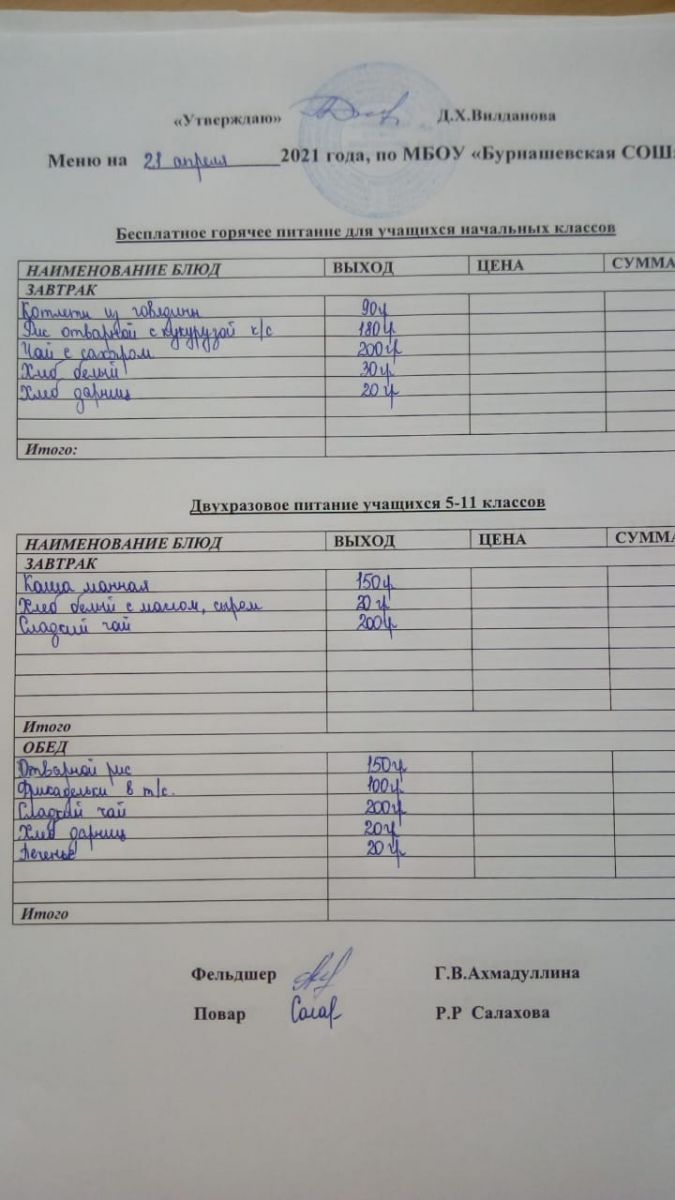 «Утверждаю» Д.Х.Вилданова
Меню на 21 апреля 2021 года, по МБОУ «Бурнашевская СОШ»
Бесплатное горячее питание для учащихся начальных классов
НАИМЕНОВАНИЕ БЛЮД ВЫХОД ЦЕНА СУММА
ЗАВТРАК
Котлеты из говядины 90гр
Рис отварной с кукурузой к/с 180гр
Чай с сахаром 200гр
Хлеб белый 30гр
Хлеб дарниц 20гр
Итого:
Двухразовое питание учащихся 5-11 классов
НАИМЕНОВАНИЕ БЛЮД ВЫХОД ЦЕНА СУММА
ЗАВТРАК
Каша манная 150гр
Хлеб белый с маслом, сыром 20гр
Сладкий чай 200гр
Итого
ОБЕД
Отварной рис 150гр
Фрикадельки в т/с. 100гр
Сладкий чай 200гр
Хлеб дарниц 20гр
Печенье 20гр
Итого
Фельдшер Г.В.Ахмадуллина
Повар Салах Р.Р Салахова